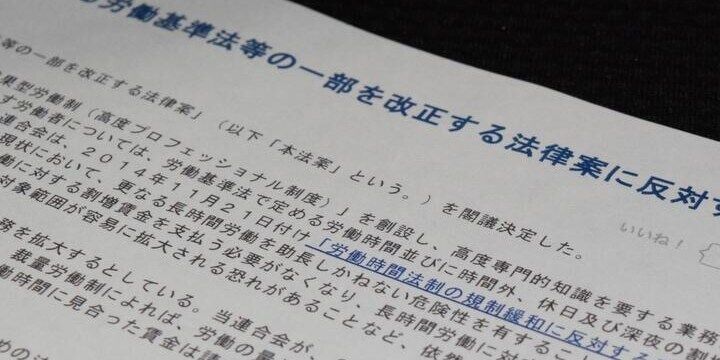 労働基準法等の一部を改正する法律案に反対す
等の一部を改正する法律案」(以下「本法案」という。)を閣議決定した。
果型労働制(高度プロフェッショナル制度)」を創設し、高度専門的知識を要する業務
す労働者については、労働基準法で定める労働時間並びに時間外、休日及び深夜の割
連合会は、2014年11月21日付け「労働時間法制の規制緩和に反対す
現状において、更なる長時間労働を助長しかねない危険性を有すること
働に対する割増賃金を支払う必要がなくなり、長時間労働に対
対象範囲が容易に拡大される恐れがあることなど、依然
務を拡大するとしている。当連合会が、
裁量労働制によれば、労働の量
働時間に見合った賃金は請
いいね!